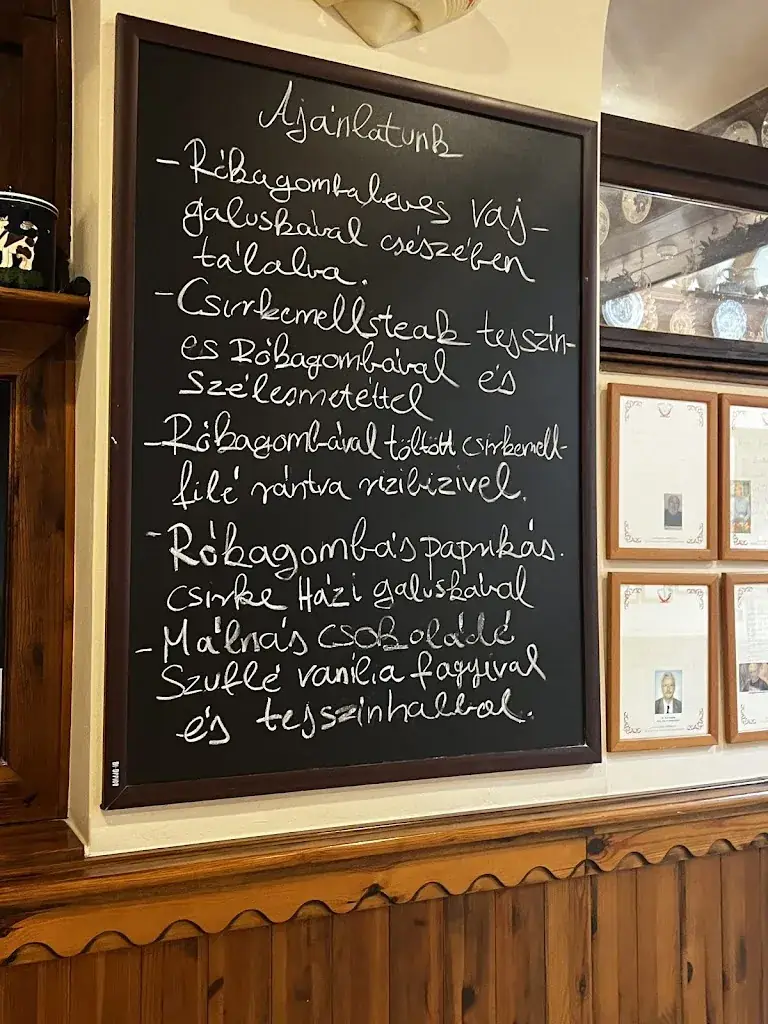 Ajánlatunk
- Rókagombaleves vaj-
galuskával csészében
tálalva.
- Csirkemellsteak tejszín-
es Rókagombával és
szélesmetéttel
- Rókagombával töltött csirkemell-
filé rántva rizibizivel.
- Rókagombás paprikás.
csirke Házi galuskával
- Málnás csokoládé
Szuflé vanília fagyival
és tejszínhabbal.